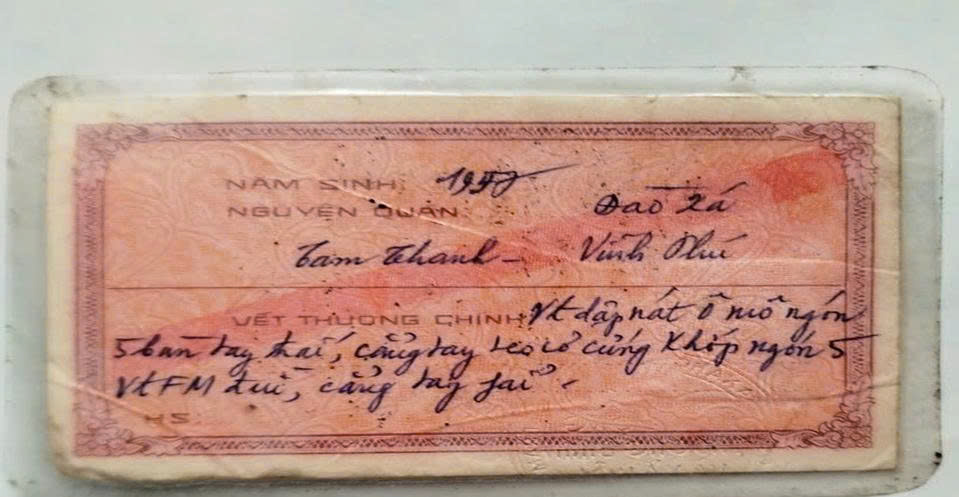 NĂM SINH: 1950
NGUYÊN QUÁN: Đào Xá
Tam Thanh - Vĩnh Phú
VẾT THƯƠNG CHÍNH: Vt dập nát ô mô ngón
5 bàn tay trái, cẳng tay teo cơ cứng khớp ngón 5
Vt FM đùi, cẳng tay fải.
HS